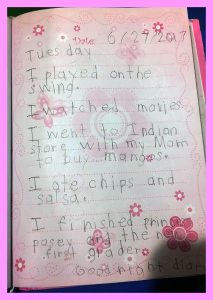 Date: 6/27/2017
Tuesday
I played on the
swing.
I watched movies
I went to Indian
store with my Mom
to buy mangos.
I ate chips and
salsa.
I finished prin
posey and the
first grader
Good night diar